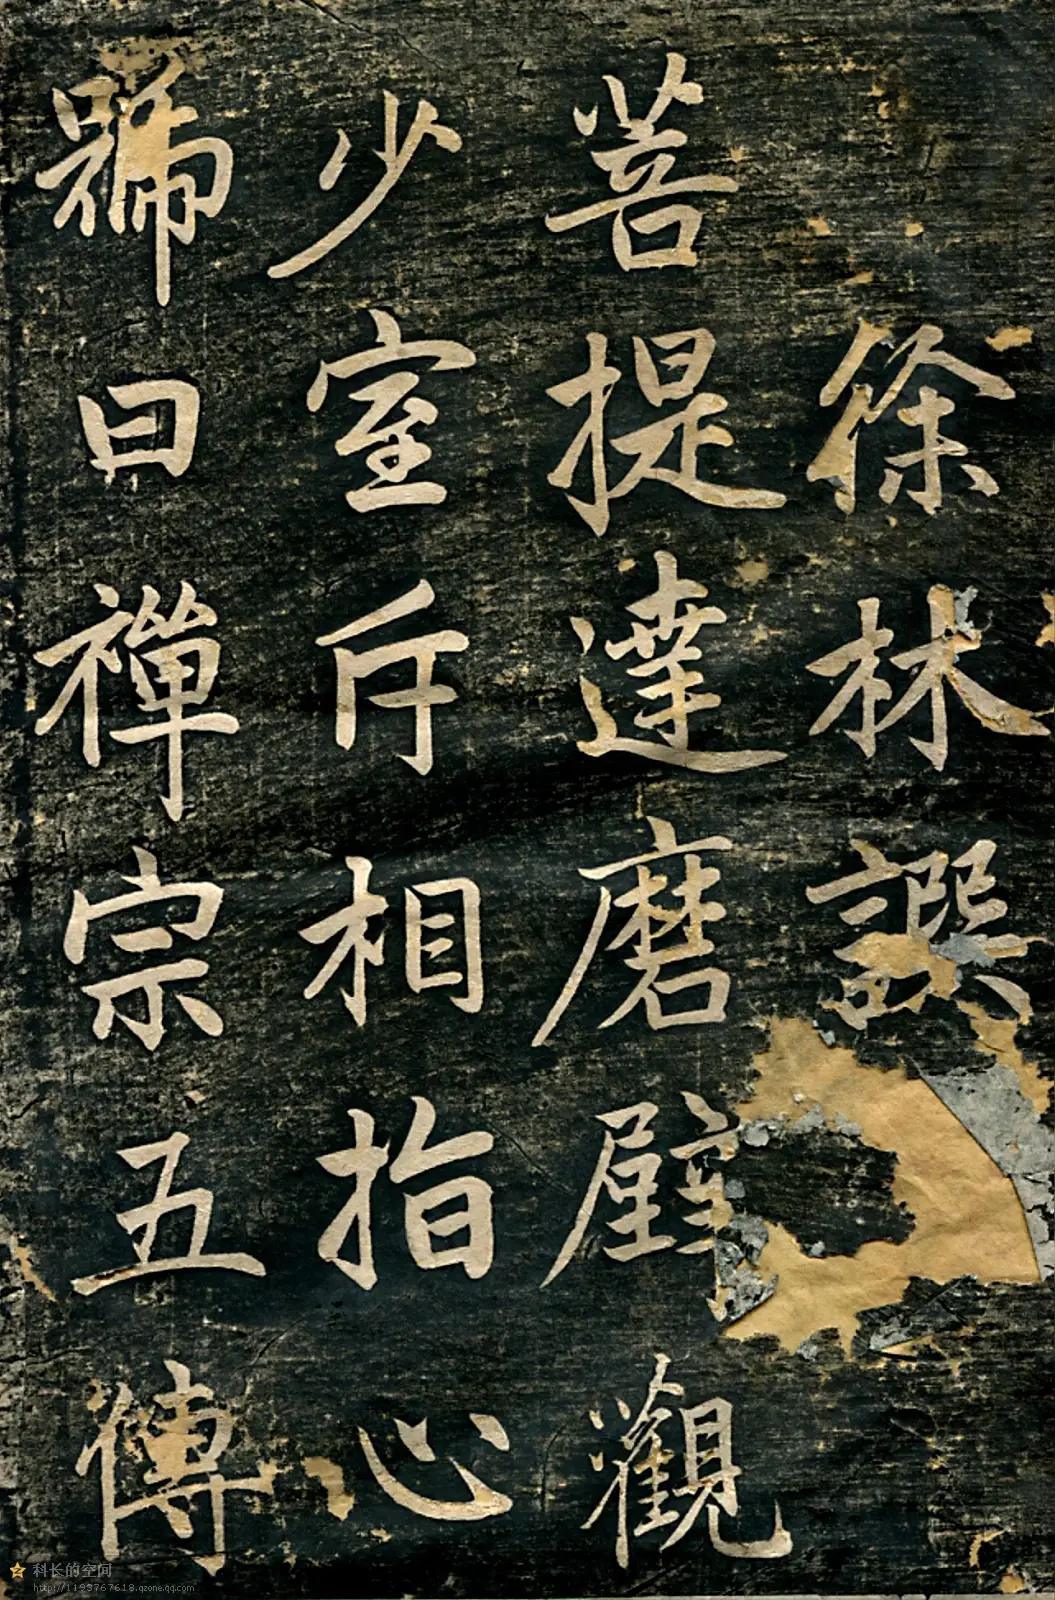 徐林譔
菩提達磨壁觀
少室斥相指心
號曰禪宗五傳
科长的空间
http://1193767618.qzone.qq.com